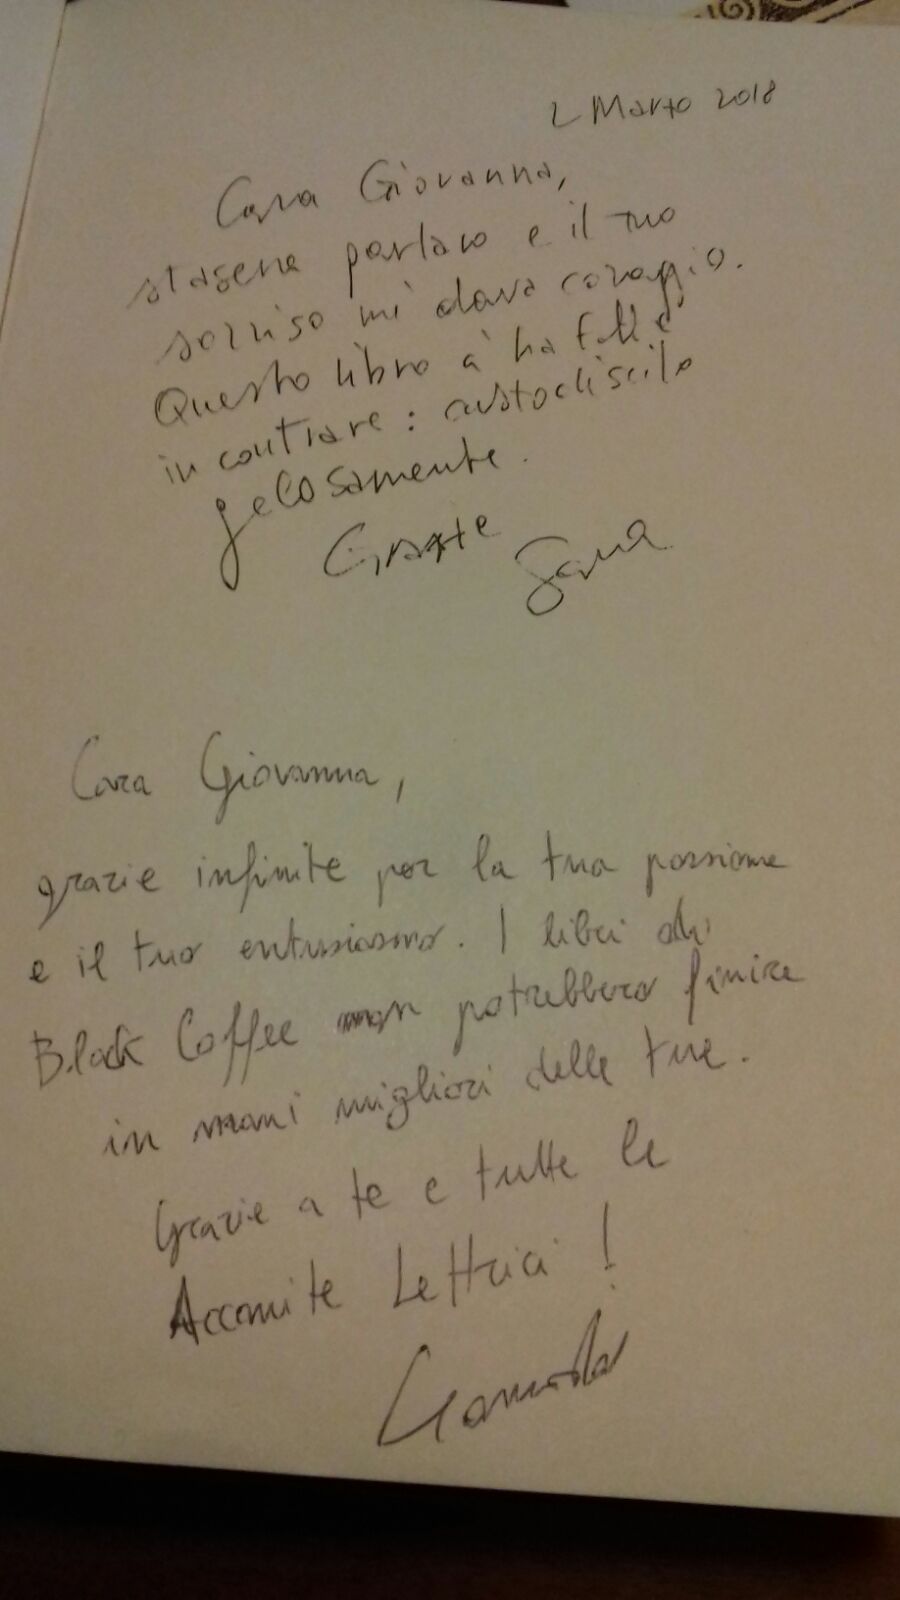 2 Marzo 2018
Cara Giovanna,
stasera parlavo e il tuo
sorriso mi dava coraggio.
Questo libro ci ha fatte
incontrare: custodiscilo
gelosamente.
Grazie Sara
Cara Giovanna,
grazie infinite per la tua passione
e il tuo entusiasmo. I libri di
Black Coffee non potrebbero finire
in mani migliori delle tue.
Grazie a te e tutte le
Accanite Lettrici!